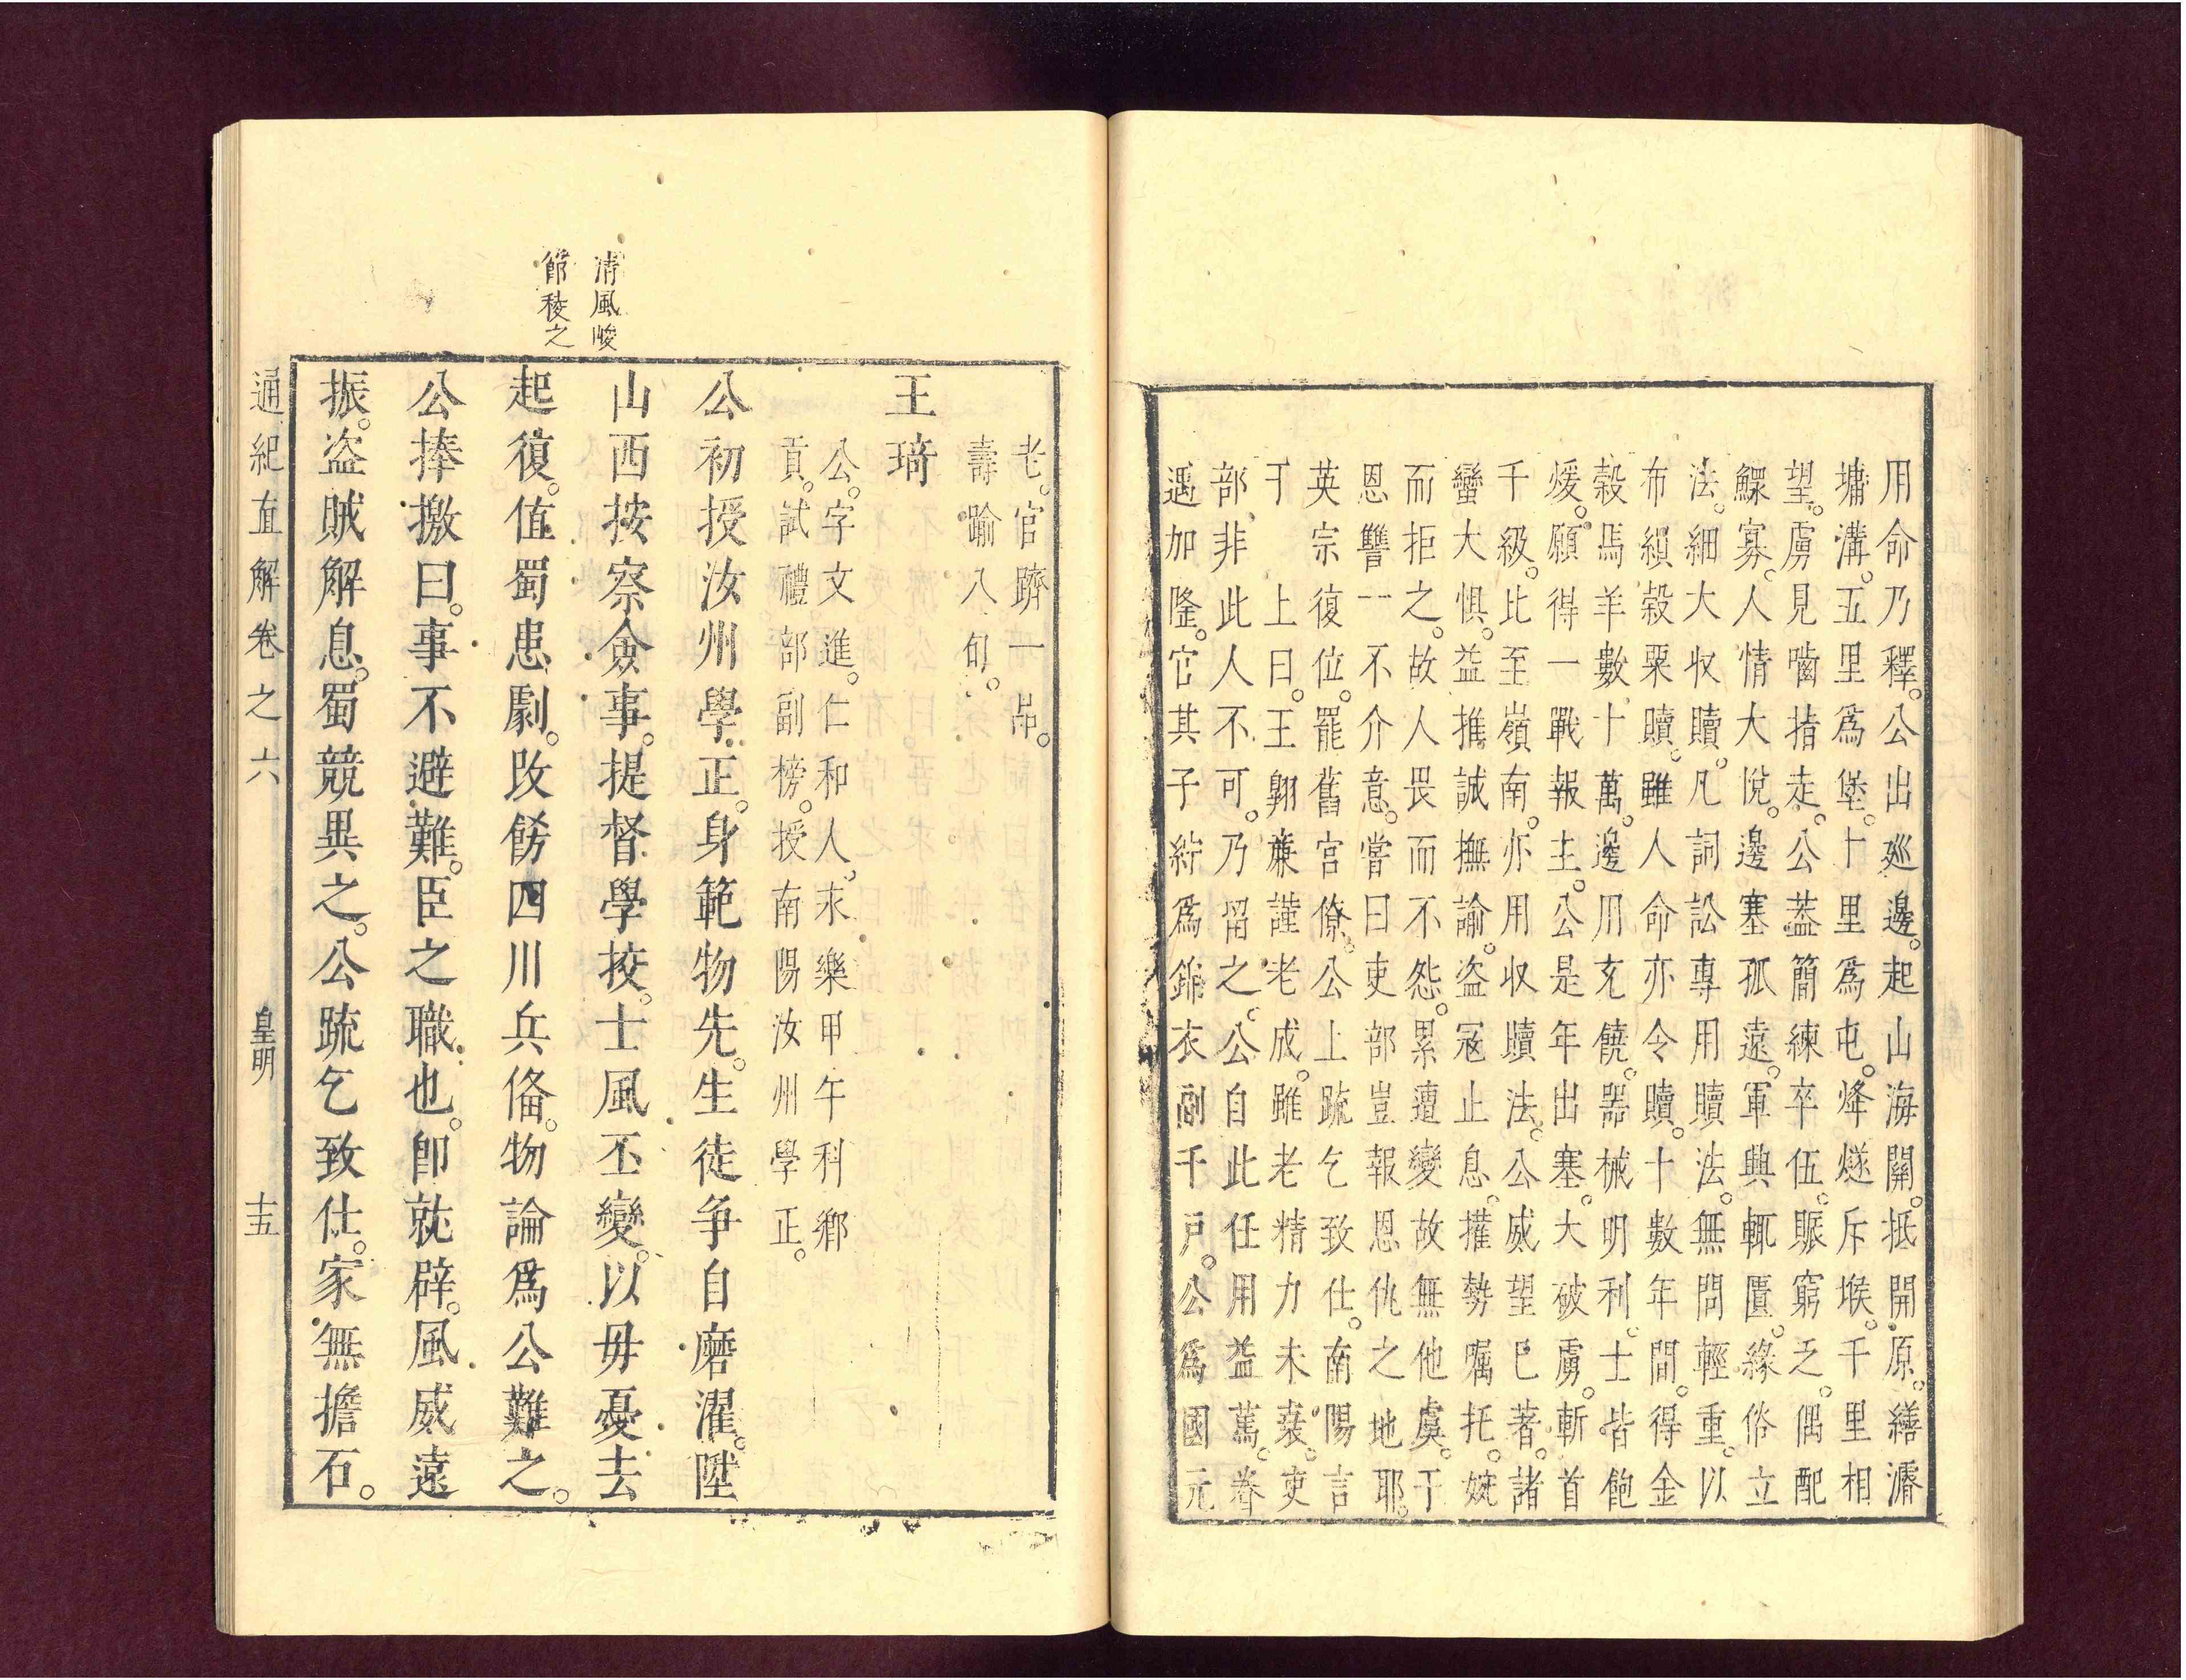 用命乃釋。公出廵邊。起山海關。抵開原。繕濬
墉溝。五里爲堡。十里爲屯。烽燧斥堠。千里相
望。虜見嚙指走。公葢簡練卒伍。賑窮乏。偶配
鰥寡。人情大悅。邊塞孤遠。軍興輒匱。緣俗立
法。細大収贖。凡詞訟專用贖法。無問輕重。以
布絹穀粟贖。雖人命亦令贖。十數年間。得金
穀馬羊數十萬。邊用充饒。噐械明利。士皆飽
煖。願得一戰報主。公是年出塞。大破虜。斬首
千級。比至嶺南。亦用収贖法。公威望已著。諸
蠻大惧。益推誠撫諭。盗冦止息。權勢嘱托。婉
而拒之。故人畏而不怨。累遭變故無他虞。于
恩讐一不介意。嘗曰吏部豈報恩仇之地耶。
英宗復位。罷舊宮僚。公上䟽乞致仕。南陽言
于上曰。王翺廉謹老成。雖老精力未衰。吏
部非此人不可。乃留之。公自此任用益篤。眷
遇加隆。官其子紵爲錦衣副千戸。公爲國元
老。官躋一品。
壽踰八旬。
王琦
公。字文進。仁和人。永樂甲午科鄉
貢。試禮部副榜。授南陽汝州學正。
公初授汝州學正。身範物先。生徒争自磨濯。陞
山西按察僉事。提督學挍。士風丕變。以毋憂去
起復。值蜀患劇。改餝四川兵俻。物論爲公難之。
公捧檄曰。事不避難。臣之職也。卽就辟。風威遠
振。盗賊解息。蜀競異之。公䟽乞致仕。家無擔石。
清風峻
節稜之
通紀直解卷之六 皇明 十五